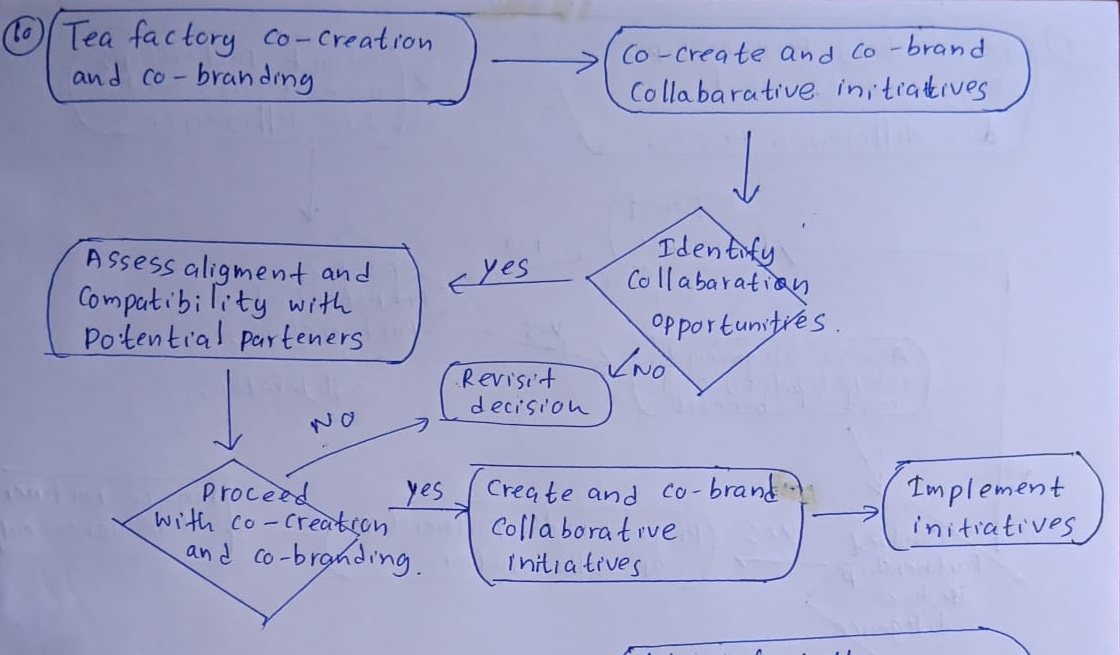 10
Tea factory co-creation
and co-branding
co-create and co-brand
Collabarative initiatives
Identify
Collabaration
opportunities.
yes
NO
Assess aligment and
Compatibility with
Potential parteners
Revisit
decision
NO
Proceed
with co-creation
and co-branding.
yes
Create and co-brand
Collaborative
initiatives
Implement
initiatives